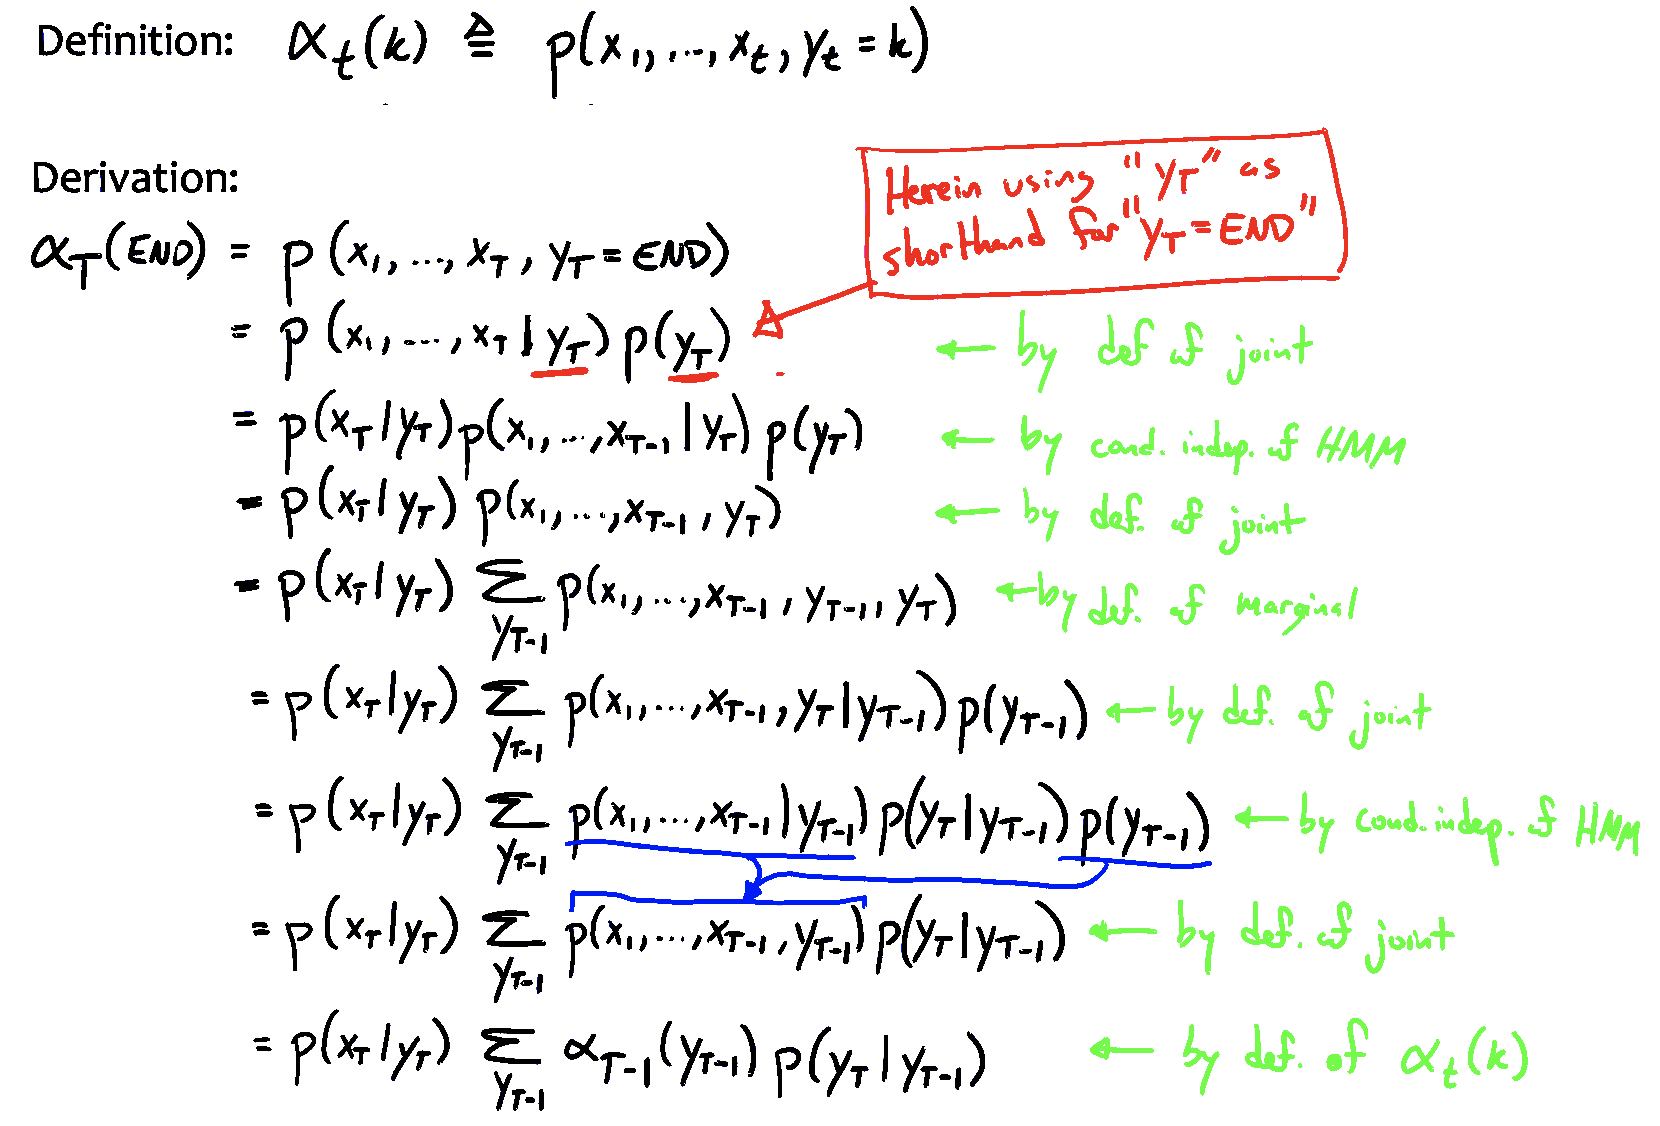 Definition: α_t(k) ≜ p(x_1, ..., x_t, y_t = k)
Derivation:
Herein using "y_T" as
shorthand for "y_T = END"
α_T(END) = p(x_1, ..., x_T, y_T = END)
= p(x_1, ..., x_T | y_T) p(y_T) ← by def of joint
= p(x_T | y_T) p(x_1, ..., x_{T-1} | y_T) p(y_T) ← by cond. indep. of HMM
= p(x_T | y_T) p(x_1, ..., x_{T-1}, y_T) ← by def. of joint
= p(x_T | y_T) Σ_{y_{T-1}} p(x_1, ..., x_{T-1}, y_{T-1}, y_T) ← by def. of marginal
= p(x_T | y_T) Σ_{y_{T-1}} p(x_1, ..., x_{T-1}, y_T | y_{T-1}) p(y_{T-1}) ← by def. of joint
= p(x_T | y_T) Σ_{y_{T-1}} p(x_1, ..., x_{T-1} | y_{T-1}) p(y_T | y_{T-1}) p(y_{T-1}) ← by cond. indep. of HMM
= p(x_T | y_T) Σ_{y_{T-1}} p(x_1, ..., x_{T-1}, y_{T-1}) p(y_T | y_{T-1}) ← by def. of joint
= p(x_T | y_T) Σ_{y_{T-1}} α_{T-1}(y_{T-1}) p(y_T | y_{T-1}) ← by def. of α_t(k)